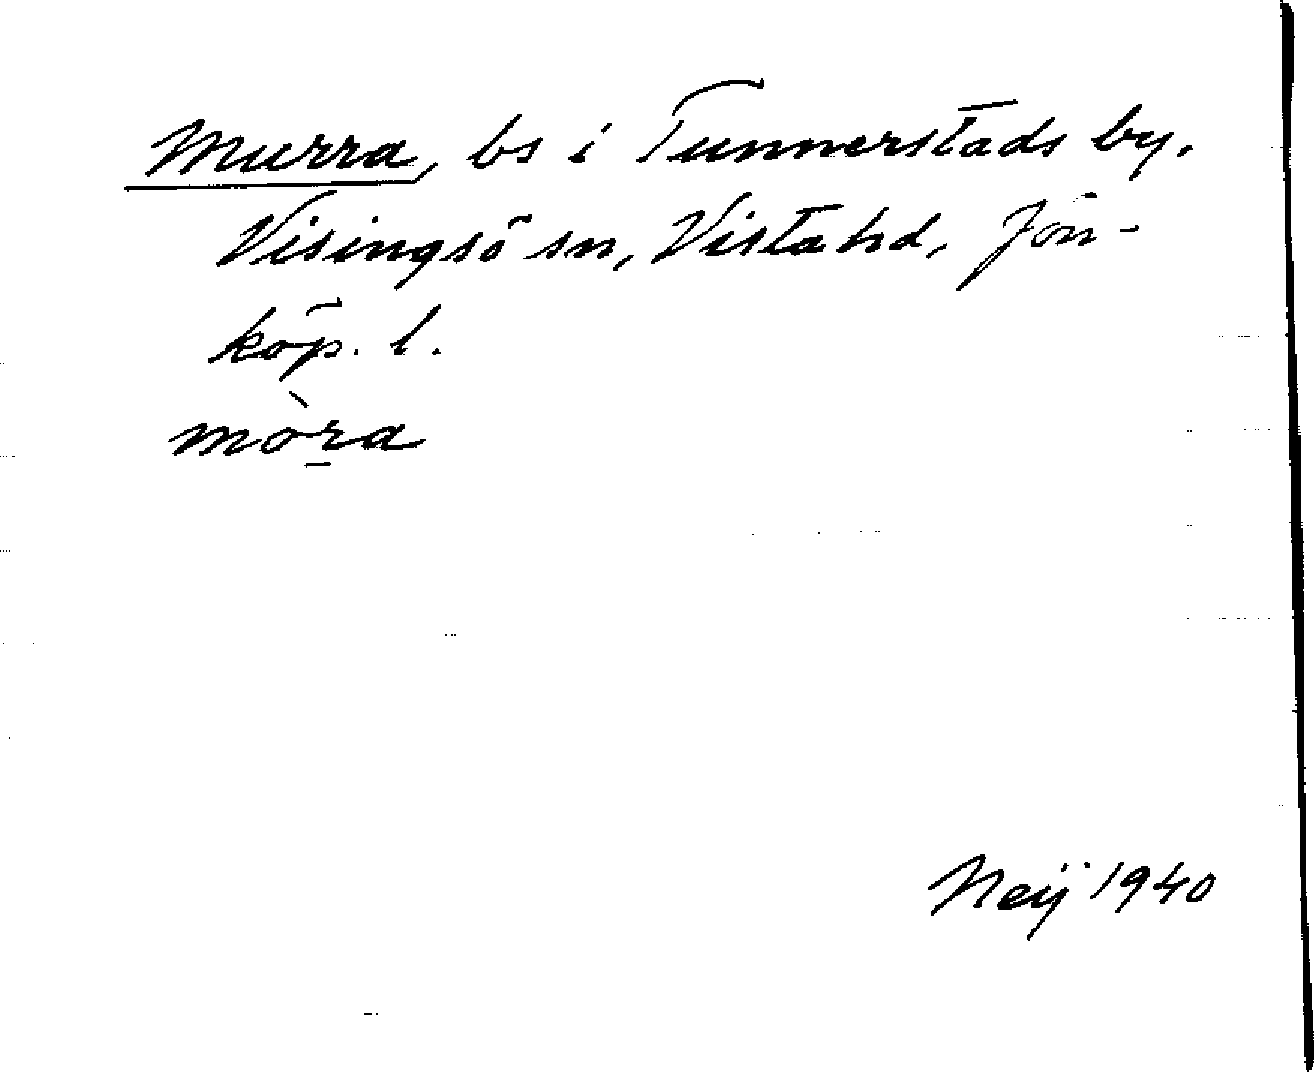 Murra, bs i Tunnerstads by,
Visingsö sn, Vista hd, Jön-
köp. l.
mòr̠a
Neij 1940